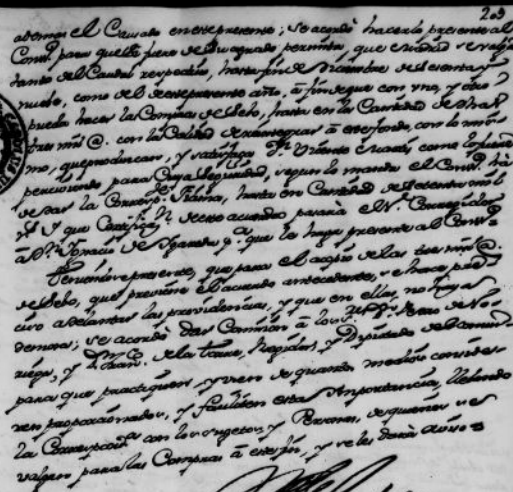 203
ademas el Causado en este presente; se acordó hacerla presente al
Cons.º para que si fuere de su agrado permita, que se valga
tanto del Caudal respectivo, hasta fin de Diciembre de setenta y
nueve, como del de este presente año, a fin de que con uno, y otro
pueda hacer las Compras de Sebo, hasta en la Cantidad de
tres mil @. con la Calidad de reintegrar a este fondo, con lo mis
mo, que produzcan, y satisfaga como lo fuere
percibiendo para Cuya seguridad, segun lo manda el Cons.º há
de dar la Corresp.te fianza, hasta en Cantidad de setenta mil
r.s Y que Certificaz.n de este acuerdo pasara el S.r Corregidor
á D.n Ignacio de Ygareda p.a que lo haga presente al Cons.º
Teniendose presente, que para el acopio de las tres mil @.
de Sebo, que previene el acuerdo antecedente, se hace pre
ciso adelantar las providencias, y que en ellas, no haya
demora; se acordó dar Comision á los S.res D.n de No
riega, y D.n Fran.co de la Torre, Regidor, y Diputado del Comun
para que practiquen, y usen de quantos medios conside
ren proporcionados, y faciliten esta Importancia, llebando
la Correspond.a con los sugetos, y Personas, de quienes se
valgan para las Compras á este fin, y se les dará aviso